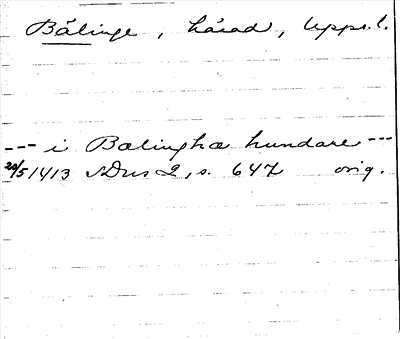 Bälinge, härad, Upps. l.
--- i Bælingha hundare ---
20/5 1413 SDns 2, s. 647 orig.